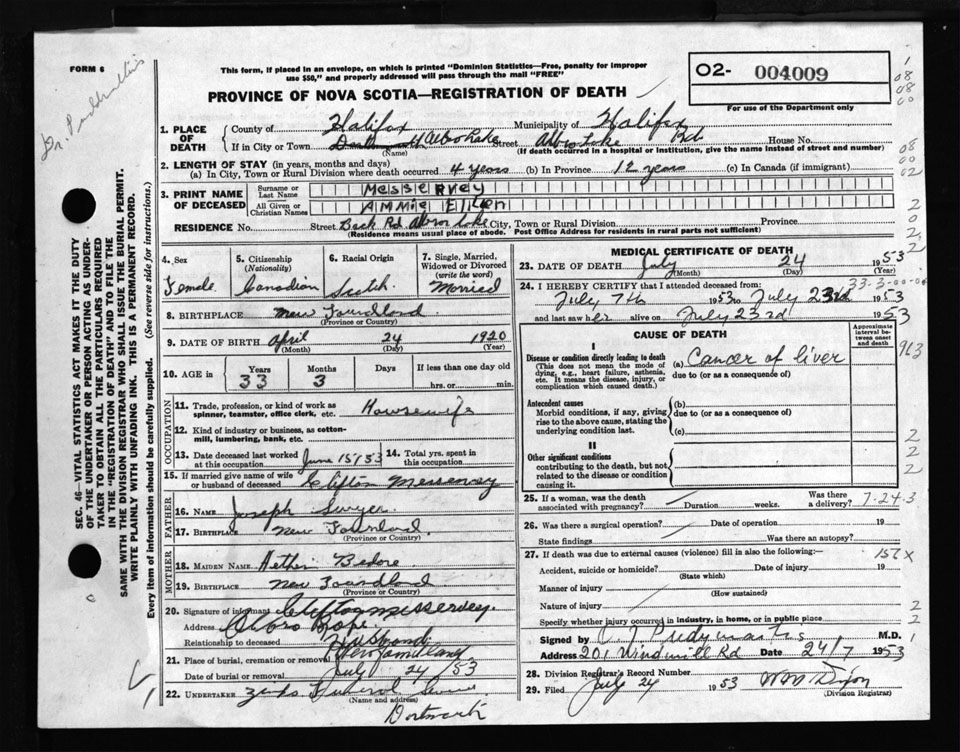 FORM 6
This form, if placed in an envelope, on which is printed "Dominion Statistics—Free, penalty for improper
use $50," and properly addressed will pass through the mail "FREE"
PROVINCE OF NOVA SCOTIA—REGISTRATION OF DEATH
02- 004009
For use of the Department only
1. PLACE OF DEATH
County of Halifax Municipality of Halifax
If in City or Town Albro Lake Street Albro Lake Rd. House No.
(Name) (If death occurred in a hospital or institution, give the name instead of street and number)
2. LENGTH OF STAY (in years, months and days)
(a) In City, Town or Rural Division where death occurred 4 years (b) In Province 12 years (c) In Canada (if immigrant)
3. PRINT NAME OF DECEASED
Surname or Last Name Messervey
All Given or Christian Names Ammie Ellen
RESIDENCE No. Street Back Rd. Albro Lake City, Town or Rural Division Province
(Residence means usual place of abode. Post Office Address for residents in rural parts not sufficient)
4. Sex Female
5. Citizenship (Nationality) Canadian
6. Racial Origin Scotch
7. Single, Married, Widowed or Divorced (write the word) Married
8. BIRTHPLACE New Foundland
(Province or Country)
9. DATE OF BIRTH April 24 1920
(Month) (Day) (Year)
10. AGE in Years 33 Months 3 Days If less than one day old hrs. or min.
OCCUPATION
11. Trade, profession, or kind of work as spinner, teamster, office clerk, etc. Housewife
12. Kind of industry or business, as cotton-mill, lumbering, bank, etc.
13. Date deceased last worked at this occupation June 15/53
14. Total yrs. spent in this occupation
15. If married give name of wife or husband of deceased Clifton Messervey
FATHER
16. NAME Joseph Swyer
17. BIRTHPLACE New Foundland
(Province or Country)
MOTHER
18. MAIDEN NAME
19. BIRTHPLACE New Foundland
(Province or Country)
20. Signature of informant Clifton Messervey.
Address
Relationship to deceased Husband
21. Place of burial, cremation or removal
Date of burial or removal July 24 /53
22. UNDERTAKER Funeral Service
(Name and address)
Dartmouth
MEDICAL CERTIFICATE OF DEATH
23. DATE OF DEATH July 24 1953
(Month) (Day) (Year)
24. I HEREBY CERTIFY that I attended deceased from:
July 7th 1953 to July 23rd 1953
and last saw her alive on July 23rd 1953
CAUSE OF DEATH
Approximate interval between onset and death
I
Disease or condition directly leading to death
(This does not mean the mode of dying, e.g., heart failure, asthenia, etc. It means the disease, injury, or complication which caused death.)
(a) Cancer of liver
due to (or as a consequence of)
Antecedent causes
Morbid conditions, if any, giving rise to the above cause, stating the underlying condition last.
(b)
due to (or as a consequence of)
(c)
II
Other significant conditions
contributing to the death, but not related to the disease or condition causing it.
25. If a woman, was the death associated with pregnancy? Duration weeks. Was there a delivery? 7-24-3
26. Was there a surgical operation? Date of operation 19
State findings Was there an autopsy?
27. If death was due to external causes (violence) fill in also the following:— 157 X
Accident, suicide or homicide? Date of injury 19
(State which)
Manner of injury
(How sustained)
Nature of injury
Specify whether injury occurred in industry, in home, or in public place
Signed by M.D.
Address 201 Windmill Rd Date 24/7 1953
28. Division Registrar's Record Number
29. Filed July 24 1953 W M Dixon
(Division Registrar)
SEC. 46—VITAL STATISTICS ACT MAKES IT THE DUTY
OF THE UNDERTAKER OR PERSON ACTING AS UNDER-
TAKER TO OBTAIN ALL THE PARTICULARS REQUIRED
IN THE "REGISTRATION OF DEATH" AND TO FILE THE
SAME WITH THE DIVISION REGISTRAR WHO SHALL ISSUE THE BURIAL PERMIT.
WRITE PLAINLY WITH UNFADING INK. THIS IS A PERMANENT RECORD.
Every item of information should be carefully supplied. (See reverse side for instructions.)